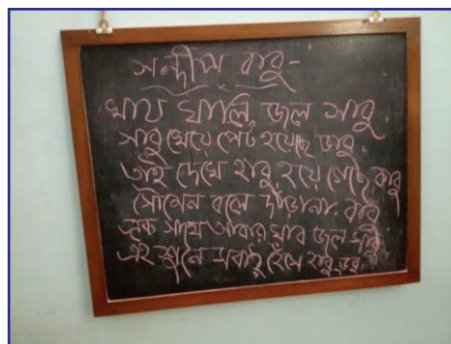 সন্দীপ বাবু-
খায় খালি জল সাবু
সাবু খেয়ে পেট হয়েছে ডাবু
তাই দেখে হাবু হয়ে গেছে কাবু
সৌমেন বলে দাঁড়ানা বাবু
এক সাথে আবার খাব জল সাবু
এই শুনে সবাই হেসে হাবু ডুবু